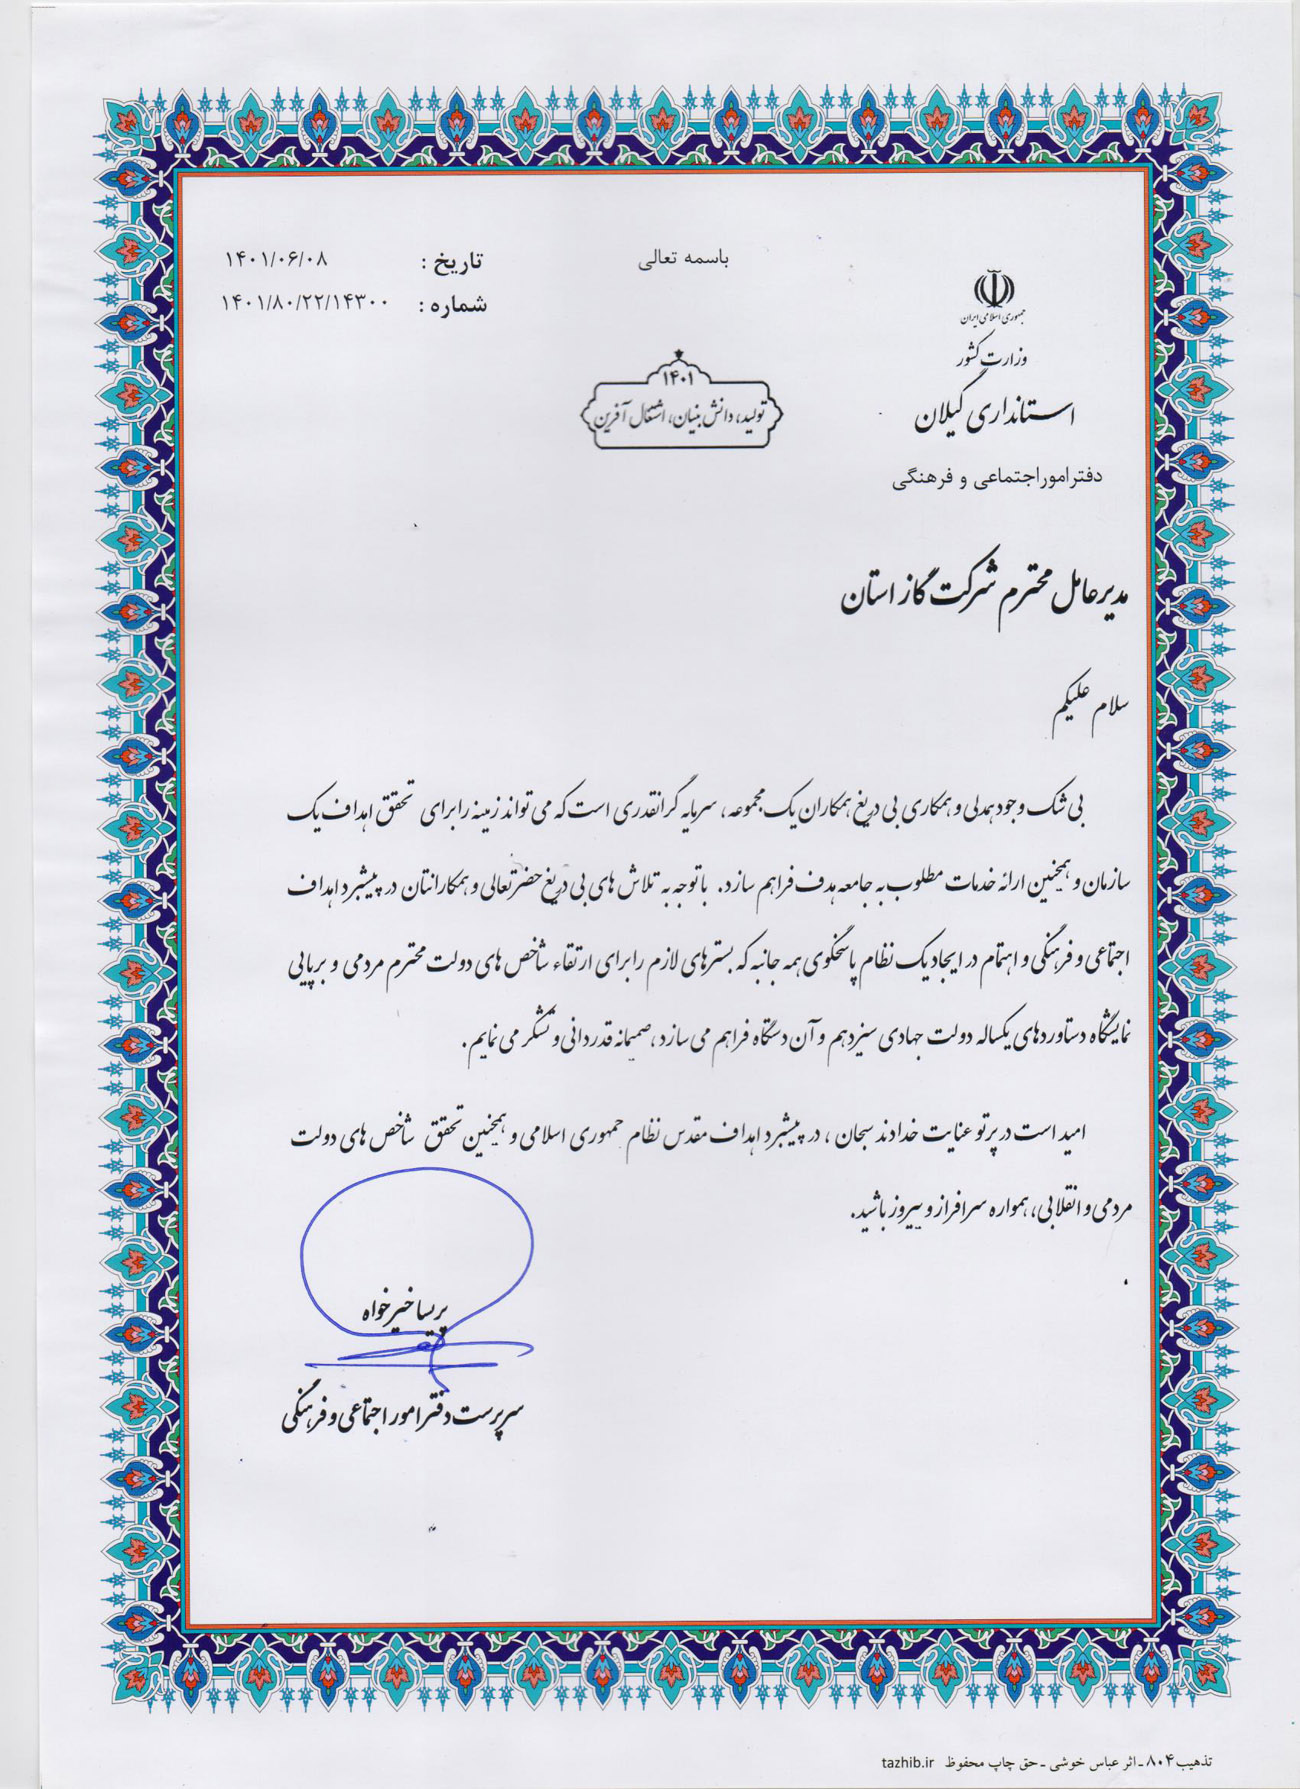 باسمه تعالی
تاریخ : ۱۴۰۱/۰۶/۰۸
شماره : ۱۴۰۱/۸۰/۲۲/۱۴۳۰۰
جمهوری اسلامی ایران
وزارت کشور
استانداری گیلان
دفتر امور اجتماعی و فرهنگی
۱۴۰۱
تولید، دانش بنیان، اشتغال آفرین
مدیرعامل محترم شرکت گاز استان
سلام علیکم
بی شک وجود همدلی و همکاری بی دریغ همکاران یک مجموعه، سرمایه گرانقدری است که می تواند زمینه را برای تحقق اهداف یک
سازمان و همچنین ارائه خدمات مطلوب به جامعه هدف فراهم سازد. با توجه به تلاش های بی دریغ حضرتعالی و همکارانتان در پیشبرد اهداف
اجتماعی و فرهنگی و اهتمام در ایجاد یک نظام پاسخگوی همه جانبه که بسترهای لازم را برای ارتقاء شاخص های دولت محترم مردمی و برپایی
نمایشگاه دستاوردهای یکساله دولت جهادی سیزدهم و آن دستگاه فراهم می سازد، صمیمانه قدردانی و تشکر می نمایم.
امید است در پرتو عنایت خداوند سبحان ، در پیشبرد اهداف مقدس نظام جمهوری اسلامی و همچنین تحقق شاخص های دولت
مردمی و انقلابی، همواره سرافراز و پیروز باشید.
پریسا خیرخواه
سرپرست دفتر امور اجتماعی و فرهنگی
تذهیب ۸۰۴ ـ اثر عباس خوشی ـ حق چاپ محفوظ tazhib.ir